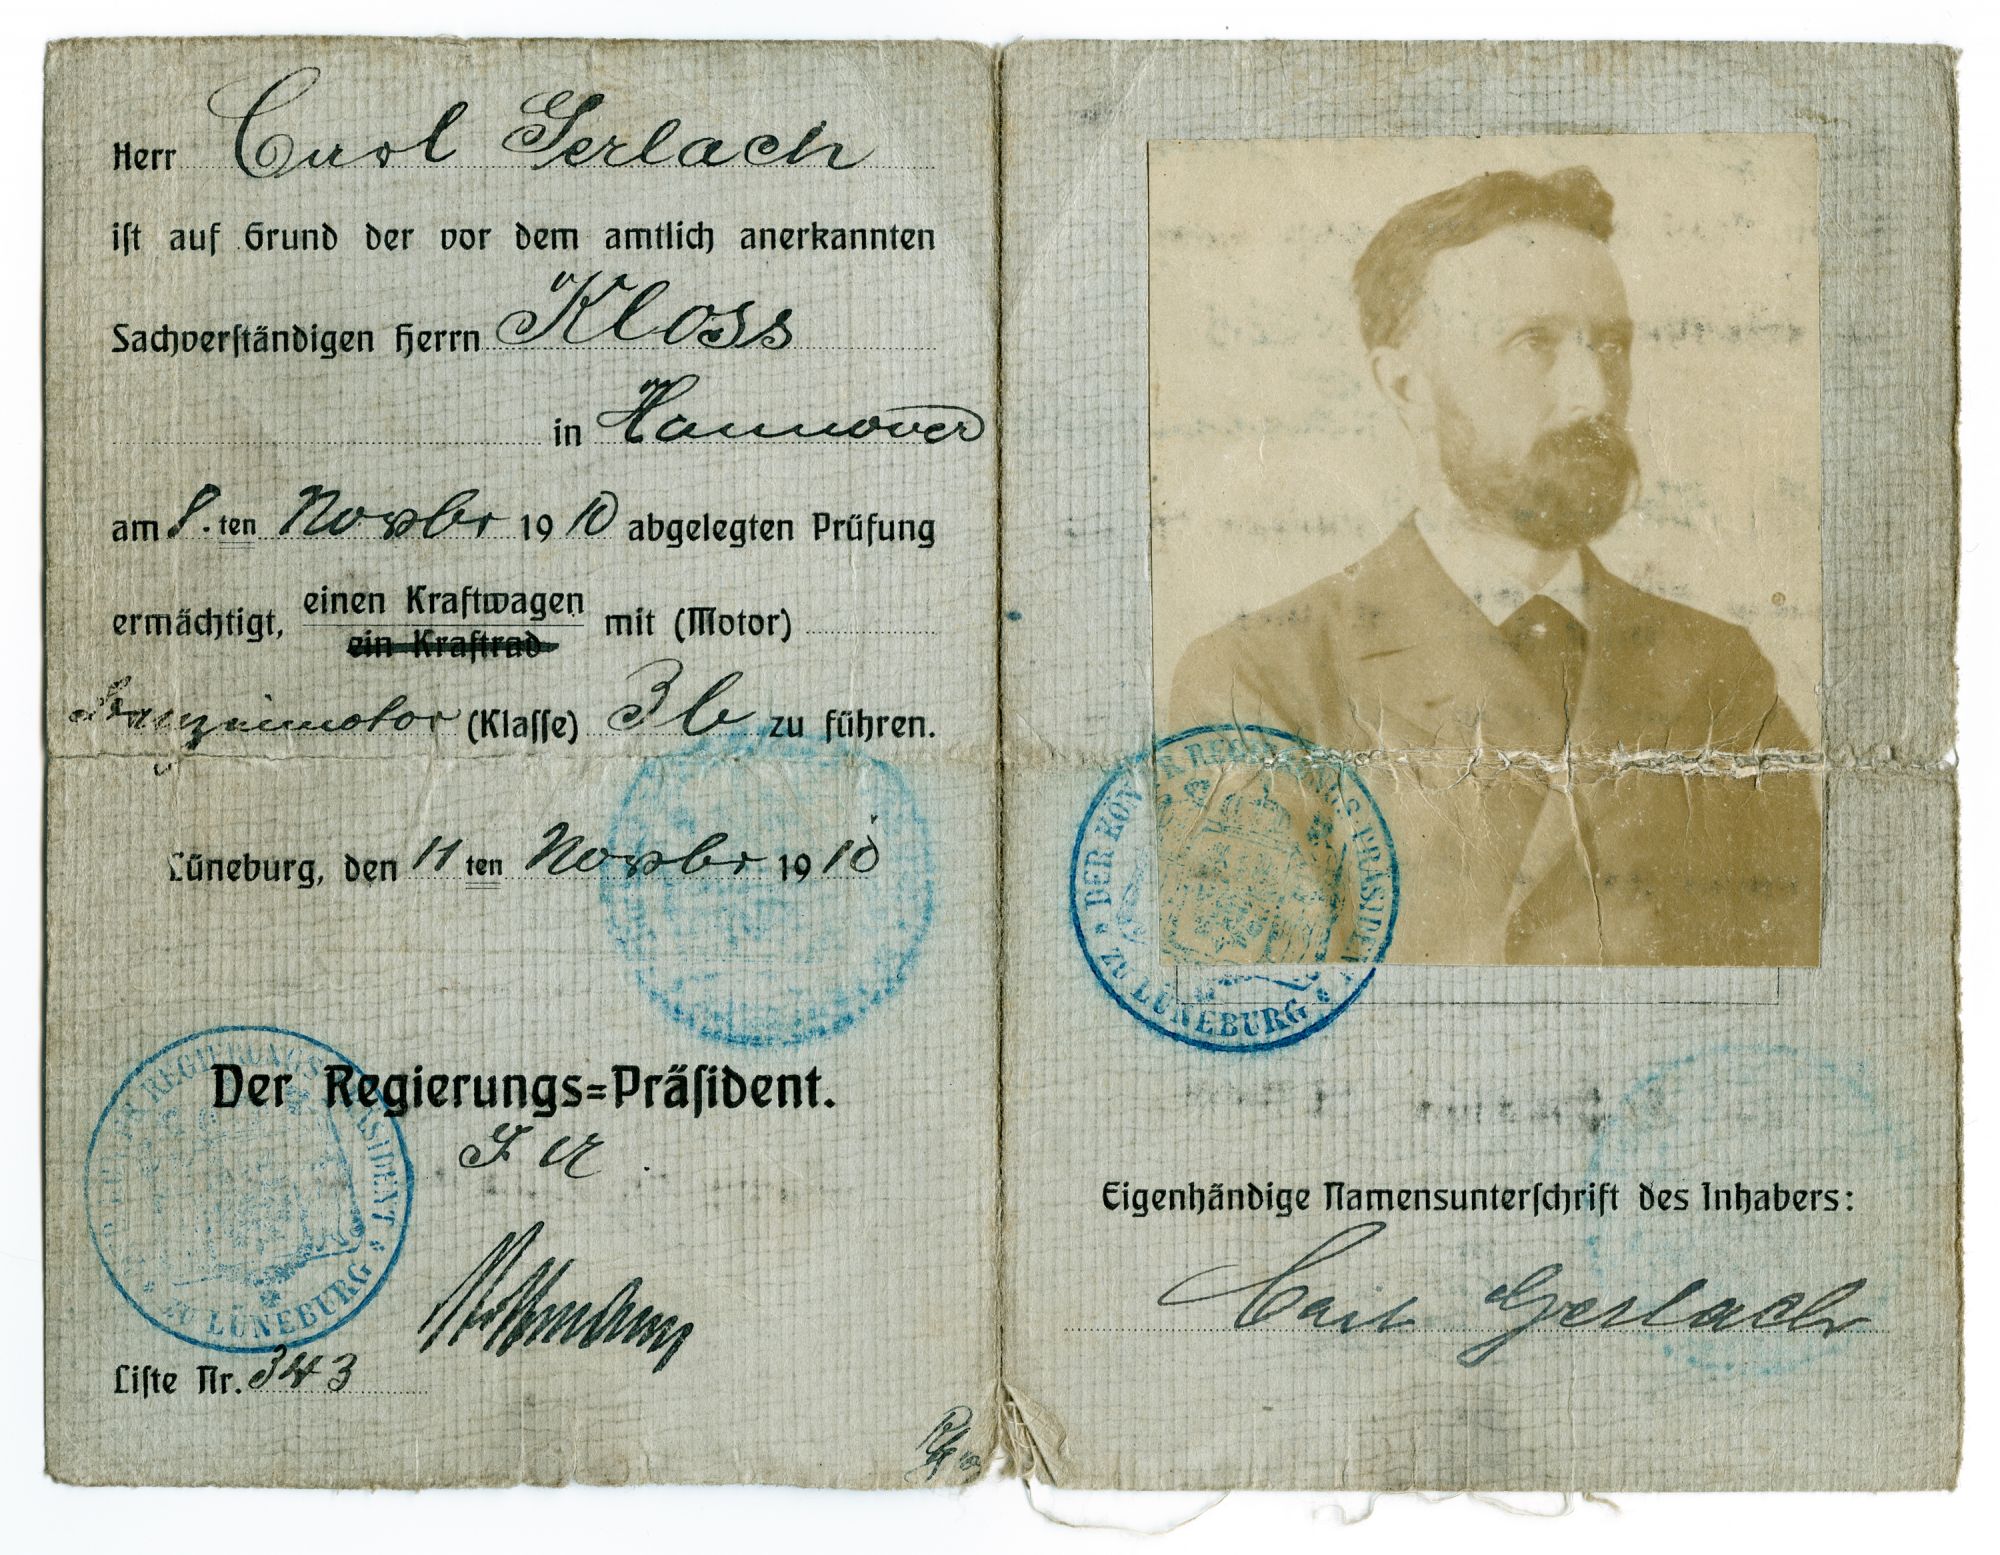 Herr Carl Gerlach
ist auf Grund der vor dem amtlich anerkannten
Sachverständigen Herrn Kloss
in Hannover
am 8. ten Novbr 1910 abgelegten Prüfung
ermächtigt, einen Kraftwagen mit (Motor)
ein Kraftrad
(Klasse) 3b zu führen.
Lüneburg, den 11 ten Novbr 1910
DER KÖN. PR. REGIERUNGS-PRÄSIDENT
ZU LÜNEBURG
Der Regierungs=Präsident.
Liste Nr. 343
DER KÖN. PR. REGIERUNGS-PRÄSIDENT
ZU LÜNEBURG
Eigenhändige Namensunterschrift des Inhabers:
Carl Gerlach